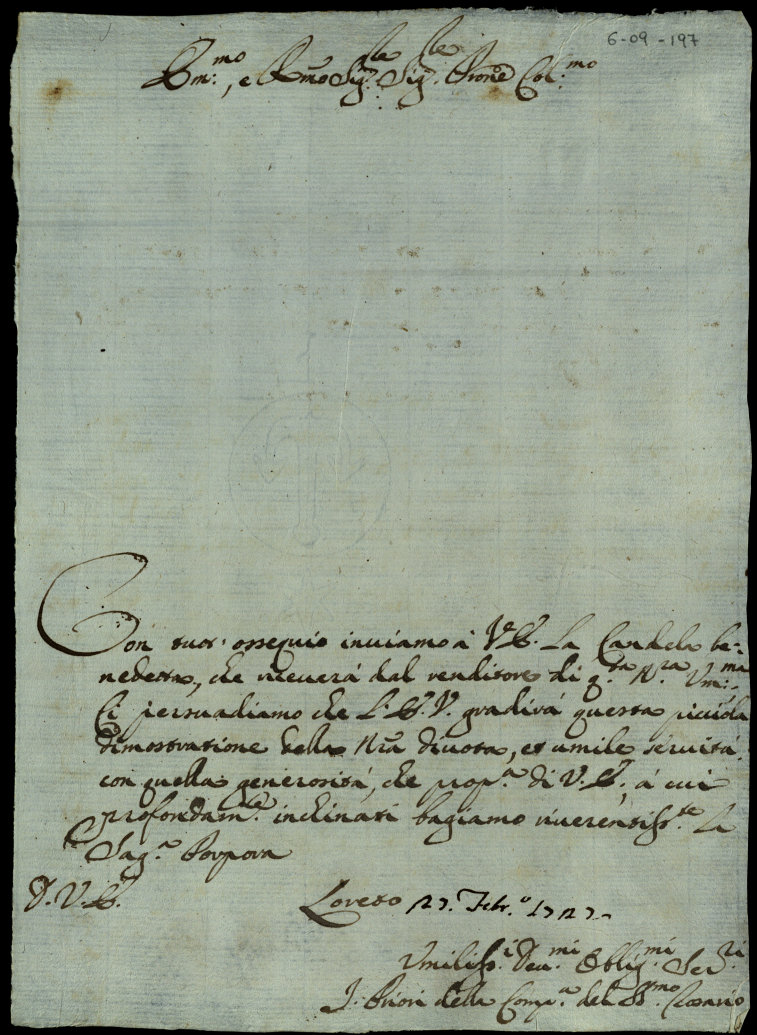 6-09-197
Em:mo, e Rmo Sig:re Sig:re Pron̄e Col:mo
Con tutt' ossequio inuiamo à V.E. La Candela be=
nedetta, che riceuerà dal renditore di q.ta N.ra Um:ma
Ci persuadiamo che L'E.V. gradirà questa picciola
dimostratione della Nr̄a diuota, et umile seruitù
con quella generosità, che prop.a di V.E., à cui
profondam.te inchinati bagiamo riuerentiss.te La
Sag.a Porpora
D.V.E.
Loreto 27. Febr.o 1727.
Umiliss.i Deu.mi Oblig.mi Ser.ri
I Priori della Comp.a del SS.mo Rosario